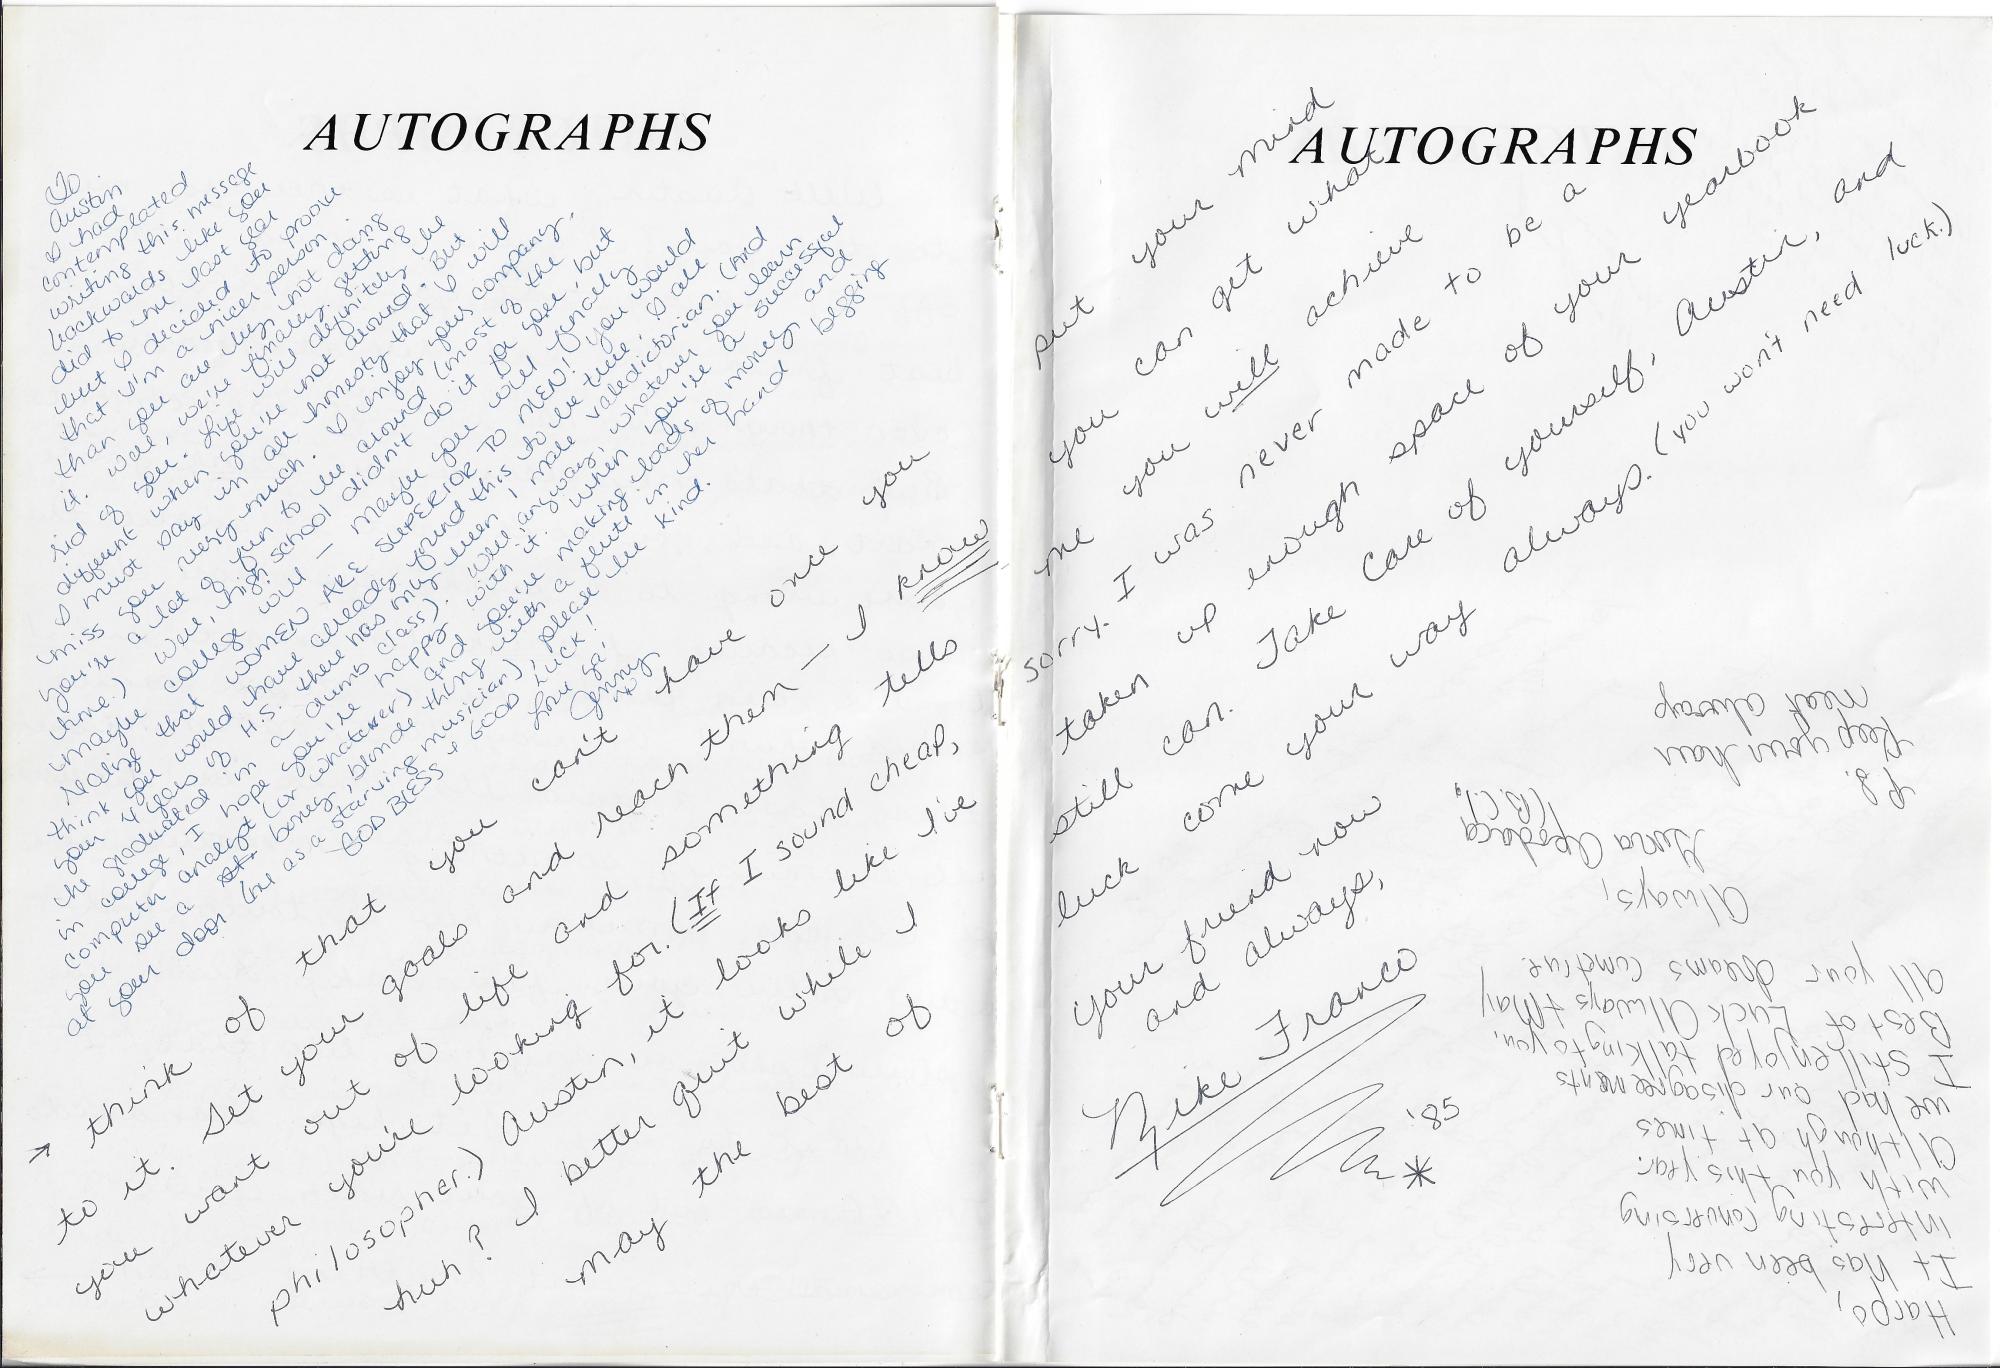 AUTOGRAPHS
AUTOGRAPHS
To
Austin
I had
contemplated
writing this message
backwards like you
did to me last year
but I decided to prove
that I'm a nicer person
than you are by not doing
it. Well, we're finally getting
rid of you. Life will definitely be
different when you're not around. But
I must say in all honesty that I will
miss you very much. I enjoy your company,
you're a lot of fun to be around (most of the
time.) Well, high school didn't do it for you, but
maybe college will — maybe you will finally
realize that WOMEN ARE SUPERIOR TO MEN! (you would
think you would have already found this to be true, all
your 4 years of H.S. there has been 1 male valedictorian. (And
he graduated in a dumb class). Well anyway, whatever you learn
in college, I hope you're happy with it. When you're a successful
computer analyst (or whatever) and you're making loads of money and
you see a boney, blonde thing with a flute in her hand begging
at your door (me as a starving musician), please be kind.
GOD BLESS & GOOD LUCK!
Love ya'
Jenny
→ think of that you can't have once you put your mind
to it. Set your goals and reach them — I know you can get what
you want out of life and something tells me you will achieve
whatever you're looking for. (If I sound cheap, sorry. I was never made to be a
philosopher.) Austin, it looks like I've taken up enough space of your yearbook
huh? I better quit while I still can. Take care of yourself, Austin, and
may the best of luck come your way always. (you won't need luck.)
your friend now
and always,
Mike Franco
'85
*
Harpo,
It has been very
interesting conversing
with you this year.
Although at times
we had our disagreements
I still enjoyed talking to you.
Best of Luck Always & May
all your dreams come true.
Always,
Apodaca
(B.C.)
P.S.
Keep your hair
neat always